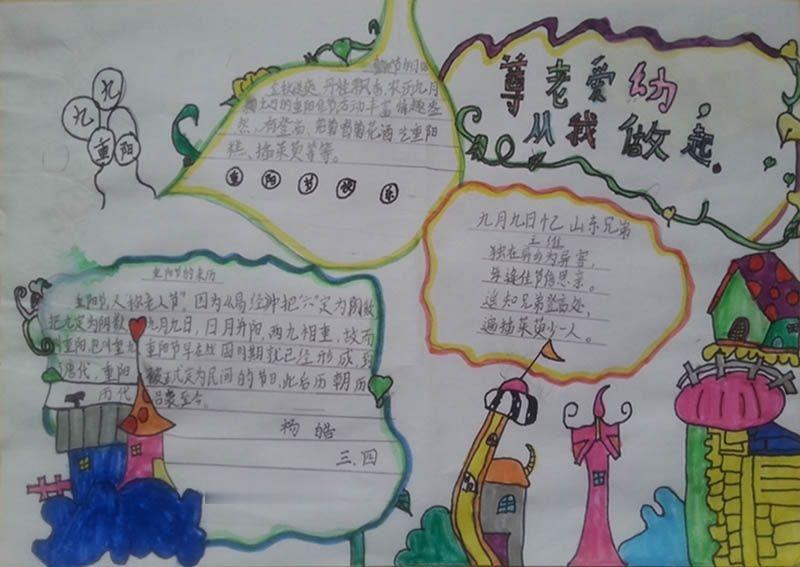 九九
重阳
尊老爱幼，
从我做起.
重阳节的习俗
金秋送爽，丹桂飘香，农历九月
九日的重阳佳节活动丰富，情趣盎
然，有登高、赏菊、喝菊花酒、吃重阳
糕、插茱萸等等。
重阳节快乐
九月九日忆山东兄弟
王维
独在异乡为异客，
每逢佳节倍思亲。
遥知兄弟登高处，
遍插茱萸少一人。
重阳节的来历
重阳节，又称老人节"。因为《易经》中把"六"定为阴数
把九定为阳数，九月九日，日月并阳，两九相重，故而
叫重阳，也叫重九，重阳节早在战国时期就已经形成，到
唐代，重阳被正式定为民间的节日，此后历朝历
历代沿袭至今。
杨皓
三、四